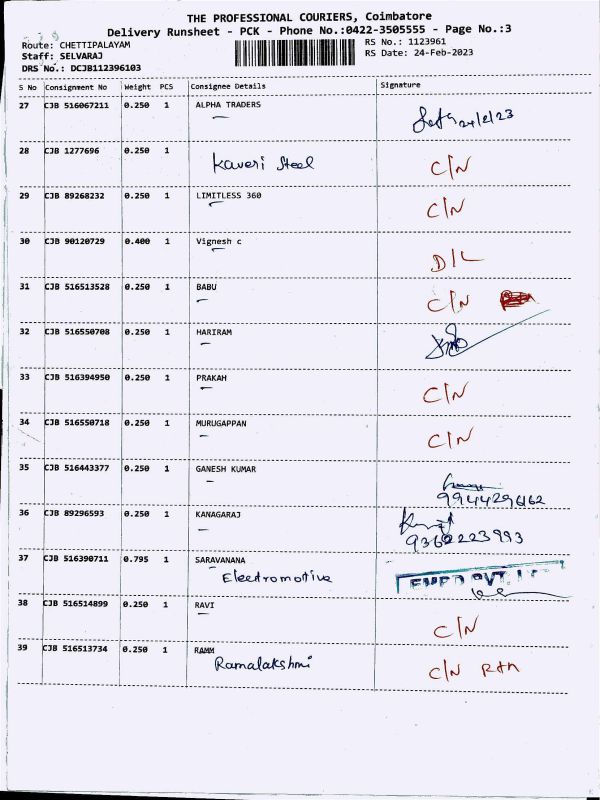 THE PROFESSIONAL COURIERS, Coimbatore
Delivery Runsheet - PCK - Phone No.:0422-3505555 - Page No.:3
Route: CHETTIPALAYAM RS No.: 1123961
Staff: SELVARAJ RS Date: 24-Feb-2023
DRS No.: DCJB112396103
S No Consignment No Weight PCS Consignee Details Signature
27 CJB 516067211 0.250 1 ALPHA TRADERS 24/2/23
28 CJB 1277696 0.250 1 Kaveri Steel C/N
29 CJB 89268232 0.250 1 LIMITLESS 360 C/N
30 CJB 90120729 0.400 1 Vignesh c D/L
31 CJB 516513528 0.250 1 BABU C/N
32 CJB 516550708 0.250 1 HARIRAM
33 CJB 516394950 0.250 1 PRAKAH C/N
34 CJB 516550718 0.250 1 MURUGAPPAN C/N
35 CJB 516443377 0.250 1 GANESH KUMAR
9944296162
36 CJB 89296593 0.250 1 KANAGARAJ
9362223993
37 CJB 516390711 0.795 1 SARAVANANA
Electromotive PVT.
38 CJB 516514899 0.250 1 RAVI C/N
39 CJB 516513734 0.250 1 RAMM
Ramalakshmi C/N